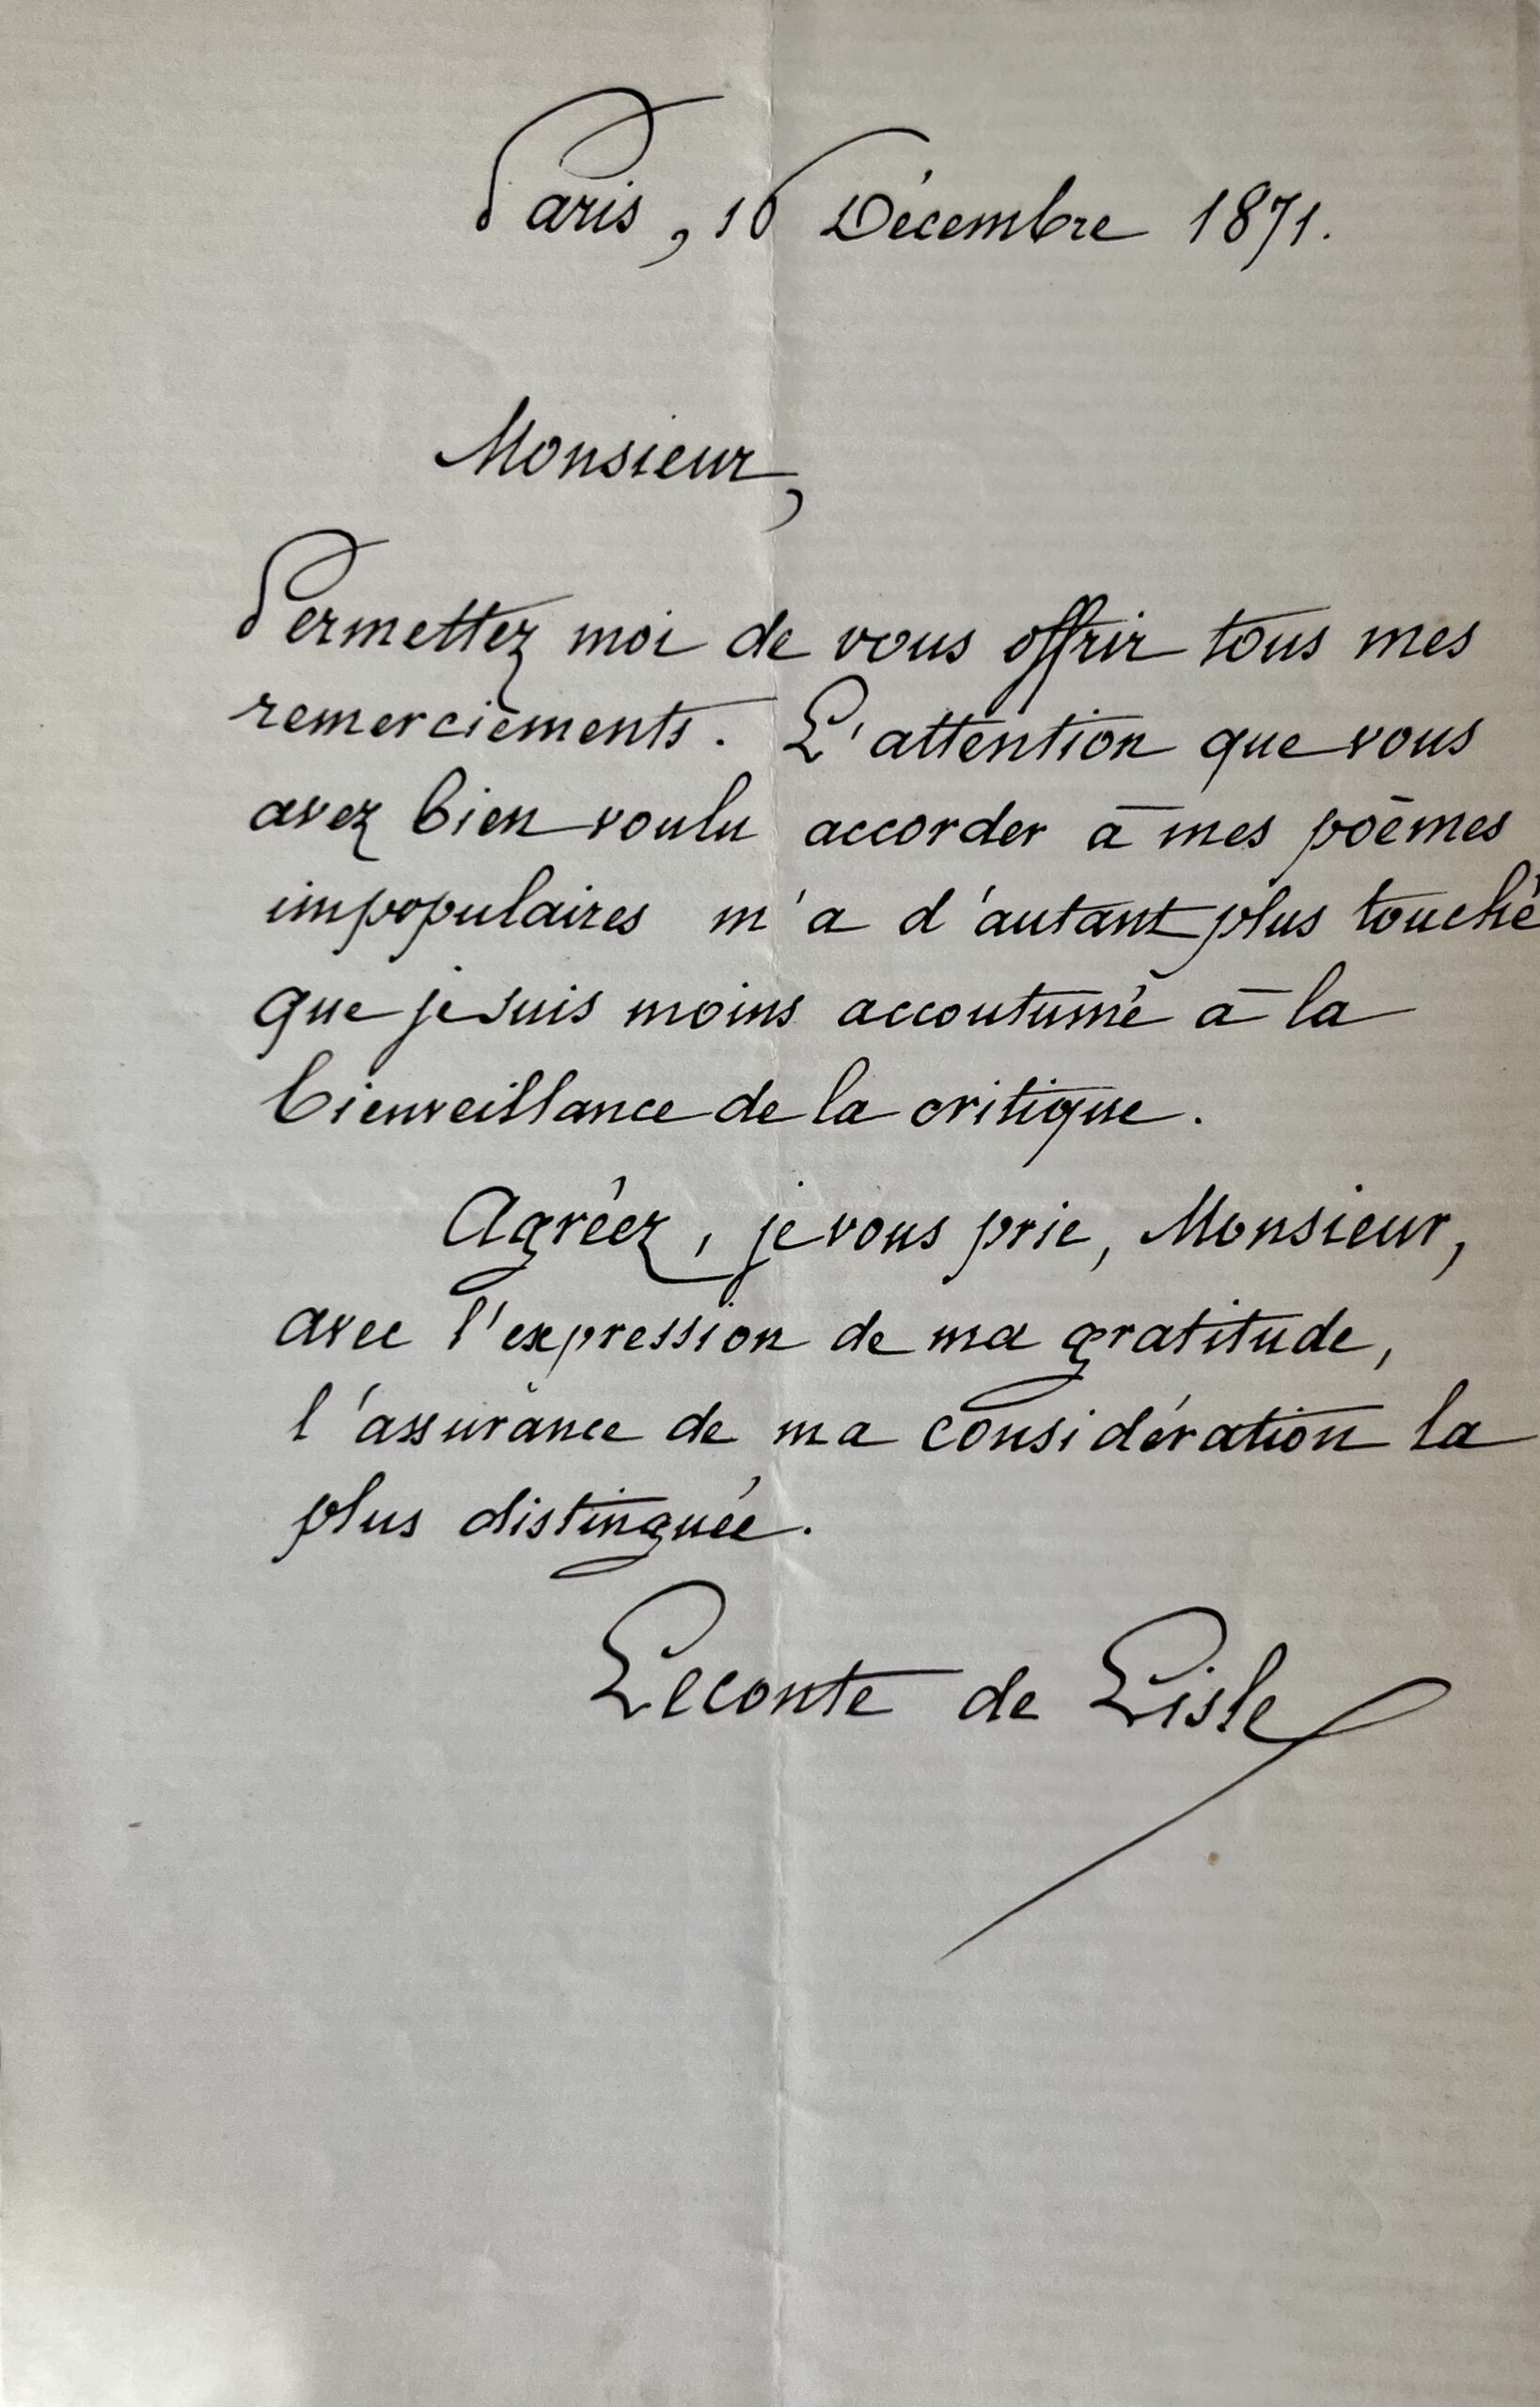 Paris, 16 Décembre 1871.
Monsieur,
Permettez moi de vous offrir tous mes
remerciements. L'attention que vous
avez bien voulu accorder à mes poèmes
impopulaires m'a d'autant plus touché
que je suis moins accoutumé à la
bienveillance de la critique.
Agréez, je vous prie, Monsieur,
avec l'expression de ma gratitude,
l'assurance de ma considération la
plus distinguée.
Leconte de Lisle